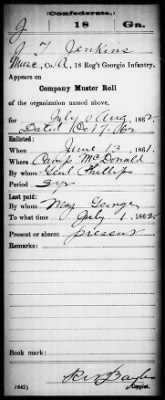 (Confederate.)
J 18 Ga.
J T Jenkins
Co. A, 18 Reg't Georgia Infantry.
Appears on
Company Muster Roll
of the organization named above,
for July & Aug, 1862.
Dated Oct 17, 62
Enlisted:
When June 13, 1861.
Where Camp McDonald
By whom Genl Phillips
Period 3 yrs
Last paid:
By whom Maj George
To what time July 1, 1862.
Present or absent present
Remarks:
Book mark:
(642)
Copyist.